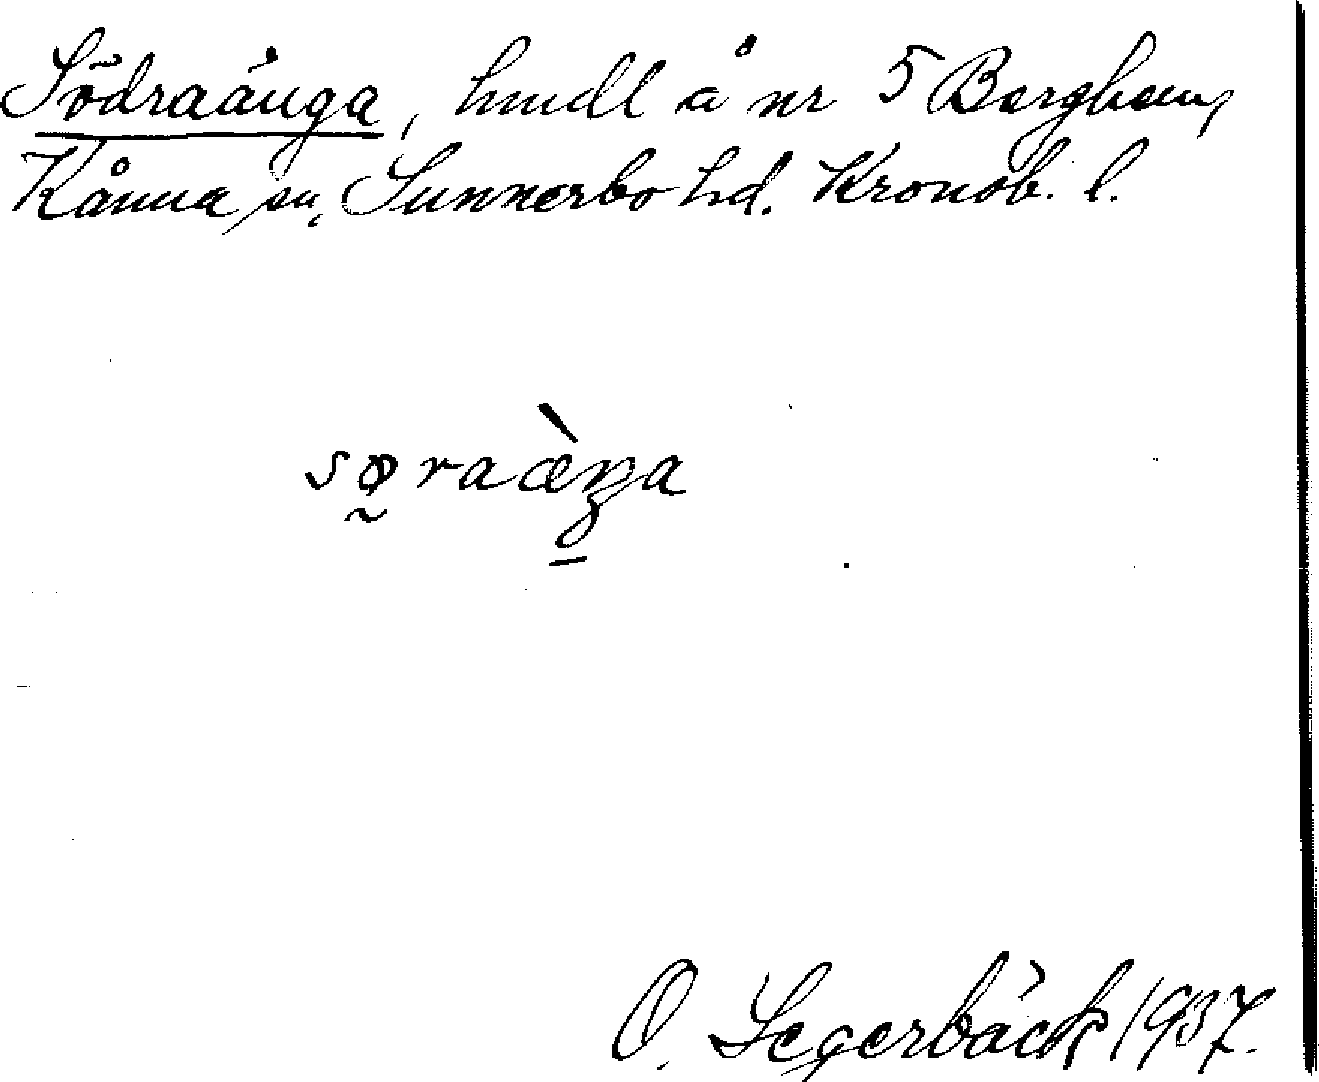 Södraänga, hmdl å nr 5 Berghem,
Kånna sn, Sunnerbo hd. Kronob. l.
sø̰raæ̀ŋa
O. Segerbäck 1937.